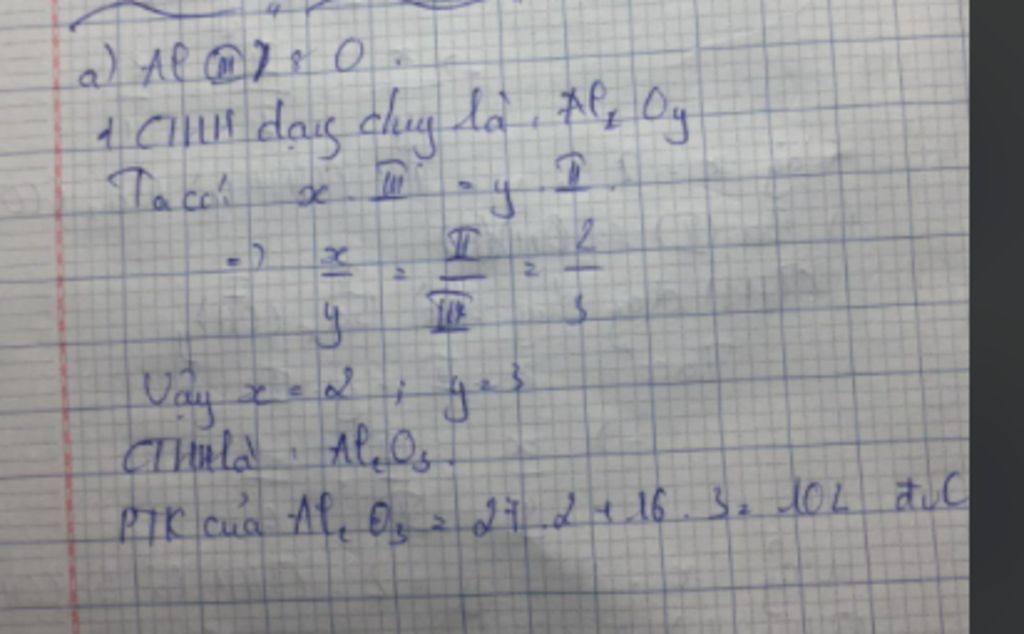 a) Al (III) và O.
CTHH dạng chung là: AlxOy
Ta có: x . III = y . II
=> x/y = II/III = 2/3
Vậy x = 2 ; y = 3
CTHH là: Al2O3.
PTK của Al2O3 = 27.2 + 16.3 = 102 đvC